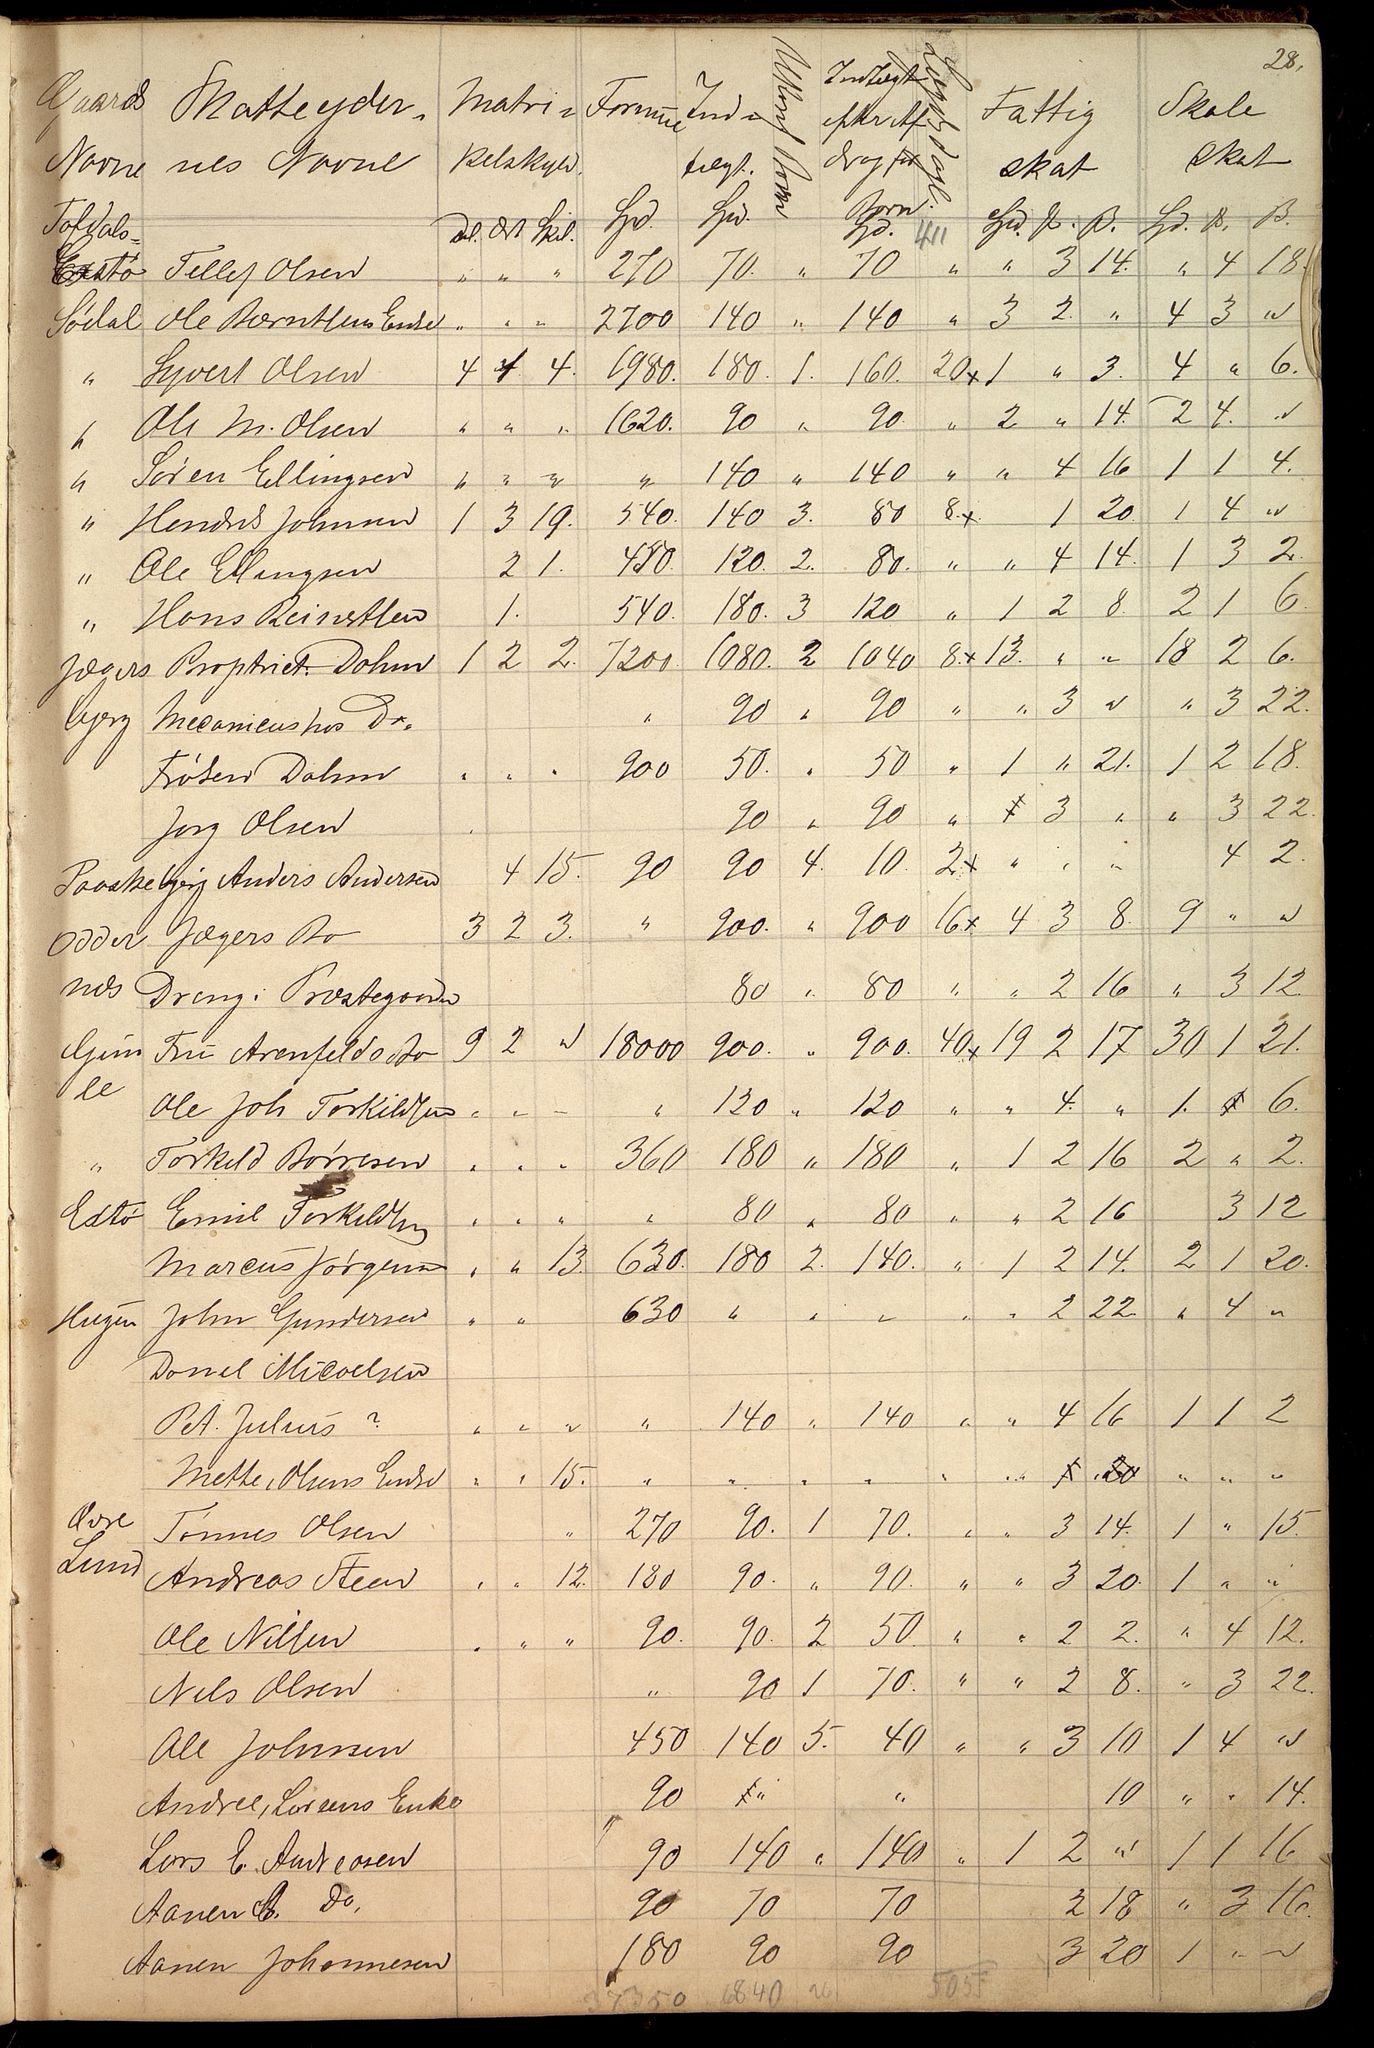 28.
Gaards Skatteyder- Matri- Formue Ind- Indtægt Fattig Skole
Navne nes Navne kelskyld. tægt. efter Af- skat skat
drag for Børn.
Dal. Ort Skil. Spd. Spd. Spd. Spd. ß. Spd.
Tofdals-
Extø Tellef Olsen " " " 270 70. " 70 " " 3 14. " 4 18.
Sødal Ole Berntsens Enke " " " 2700 140 " 140 " 3 2. " 4 3 "
" Syvert Olsen 4 4 4. 1980. 180. 1. 160. 20x 1 " 3. 4 " 6.
" Ole M. Olsen " " " 1620. 90 " 90. " 2 " 14. 2 4. "
" Søren Ellingsen " " " " 140 " 140 " " 4 16 1 1 4.
" Hendrik Johnsen 1 3 19. 540. 140 3. 80 8.x 1 20. 1 4 "
" Ole Ellingsen 2 1. 450. 120. 2. 80. " " 4 14. 1 3 2.
" Hans Reinertsen 1. 540. 180. 3 120 " 1 2 8. 2 1 6.
Jægers Proprriet. Dahm 1 2 2. 7200. 1080. 2 1040 8.x 13. " " 18 2 6.
bjerg Mecanicus hos Do. " 90 " 90 " " 3 " " 3 22.
Frøken Dahm " " " 900 50. " 50 " 1 " 21. 1 2 18.
Jørg Olsen " 90 " 90 " 3 " " 3 22.
Paaskebjerg Anders Andersen 4 15. 90 90 4. 10. 2x " " " 4 2.
Odder Jægers Bo 3 2 3. " 900. " 900 16x 4 3 8. 9 " "
næs Dreng i Præstegaarden 80 " 80 " " 2 16 " 3 12.
Gim Fru Arenfelds Bo 9 2 " 18000 900. " 900. 40x 19 2 17 30 1 21.
le Ole Joh Torkildsen " " " " 120 " 120 " " 4. " 1. 6.
" Torkild Børresen " " " 360 180 " 180 " 1 2 16 2 " 2.
Extø Emil Torkildsen " " " " 80 " 80 " " 2 16 3 12
Marcus Jørgensen " " 13. 630. 180 2. 140. " 1 2 14. 2 1 20.
Hægen John Gundersen " " 630 " " " " " 2 22. " 4 "
Daniel Micaelsen
Pet. Julius ? " " " " 140 " 140 " " 4 16 1 1 2
Mette, Olsens Enke " " 15. " " " " " " " " "
Øvre Tønnes Olsen " 270 90. 1 70. " " 3 14. 1 " 15.
Lund Andreas Steen " " 12. 180 90. " 90. " " 3 20. 1 " "
Ole Nilsen " " " 90. 90. 2 50. " " 2 2. " 4 12.
Nels Olsen " 90 1 70. " " 2 8. " 3 22.
Ole Johnsen 450 140 5. 40 " " 3 10 1 4 "
Andre, Larsens Enke 90 " " 10 " " 14.
Lars E. Andreasen 90 140 " 140 " 1 2 " 1 1 16
Aanen Do. 90 70 70 2 18 " 3 16.
Aanen Johannesen 180 90 90 3 20 1 " "
37350 6840 505